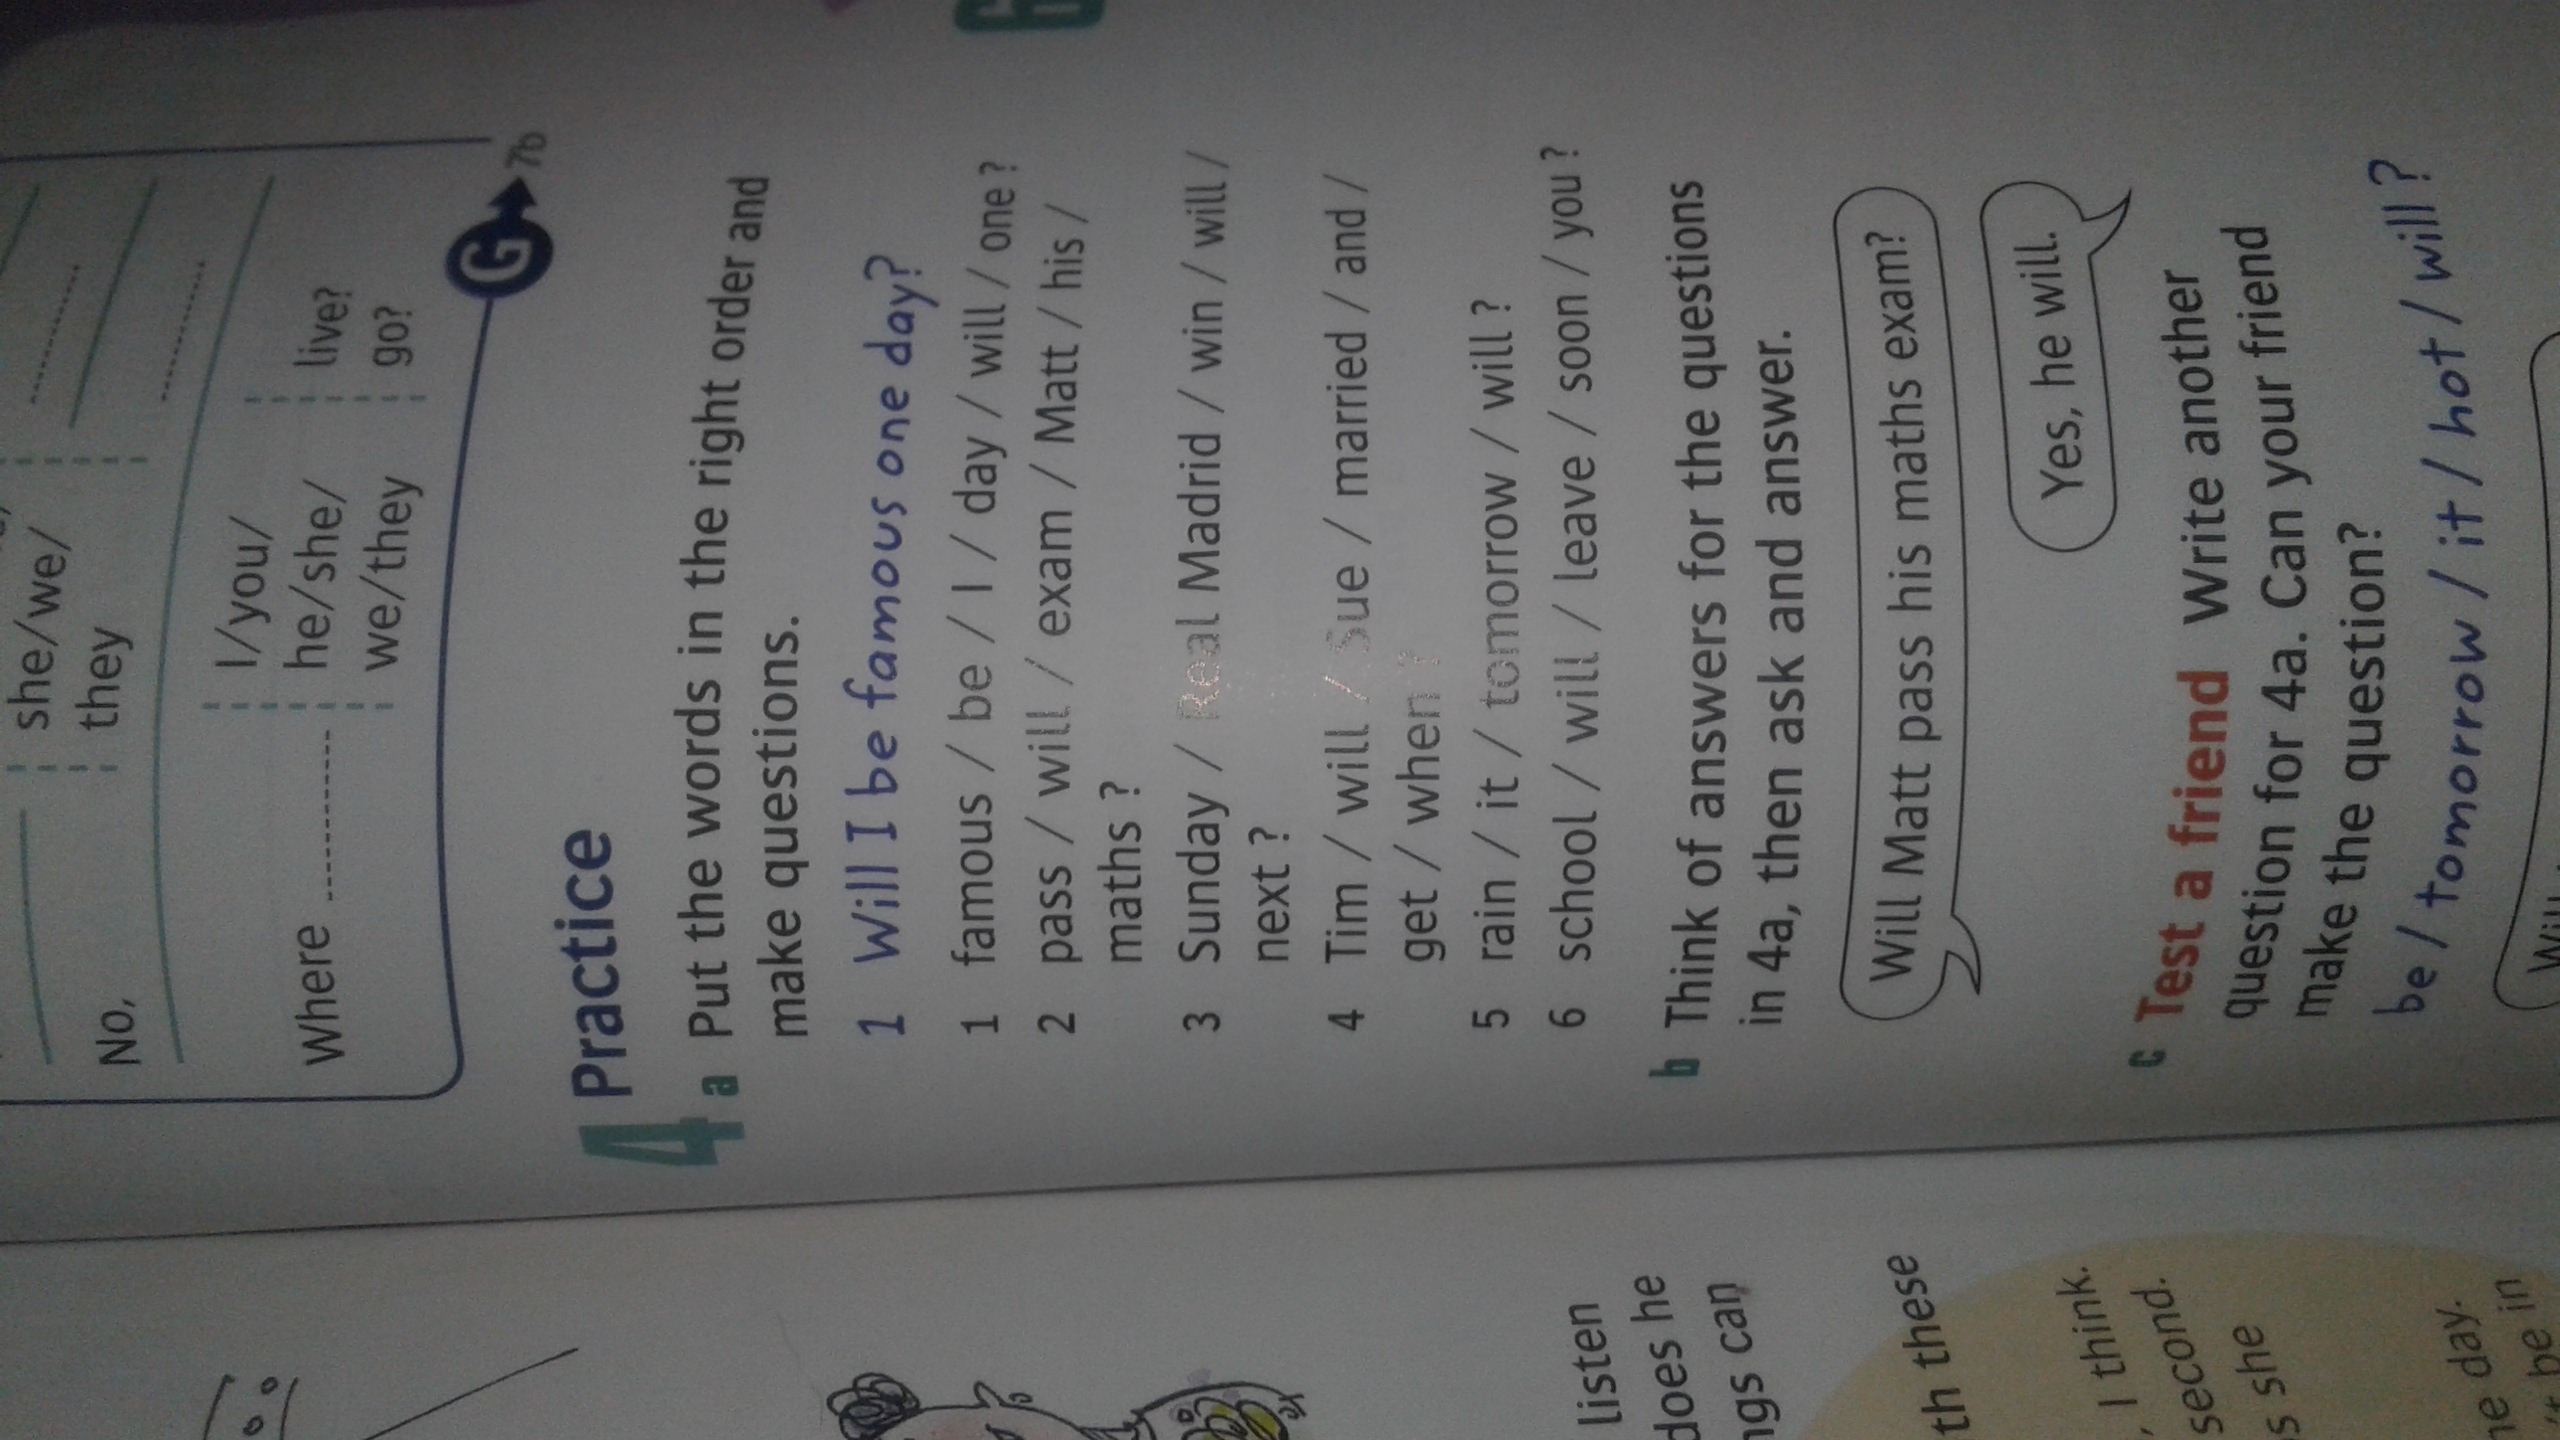 she/we/
they
No,
I/you/
Where he/she/ live?
we/they go?
G 7b
4 Practice
a Put the words in the right order and
make questions.
1 Will I be famous one day?
1 famous / be / I / day / will / one ?
2 pass / will / exam / Matt / his /
maths ?
3 Sunday / Real Madrid / win / will /
next ?
4 Tim / will / Sue / married / and /
get / when ?
5 rain / it / tomorrow / will ?
6 school / will / leave / soon / you ?
b Think of answers for the questions
in 4a, then ask and answer.
Will Matt pass his maths exam?
Yes, he will.
c Test a friend Write another
question for 4a. Can your friend
make the question?
be / tomorrow / it / hot / will ?
listen
does he
can
these
, I think.
second.
she
day.
be in